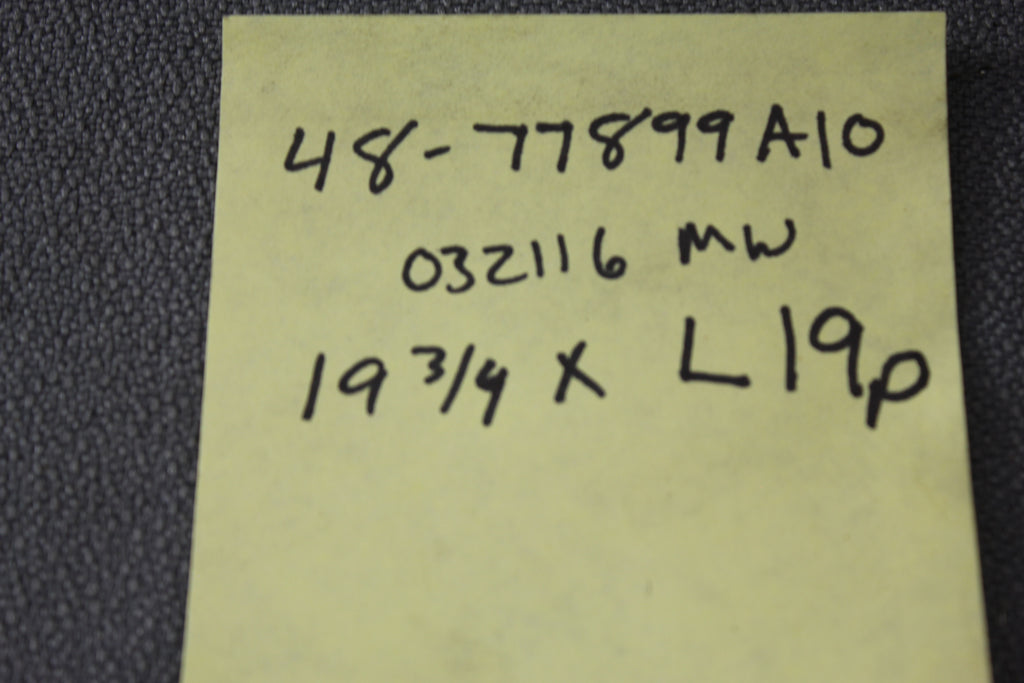 48-77899A10
032116 MW
19 3/4 X L19p